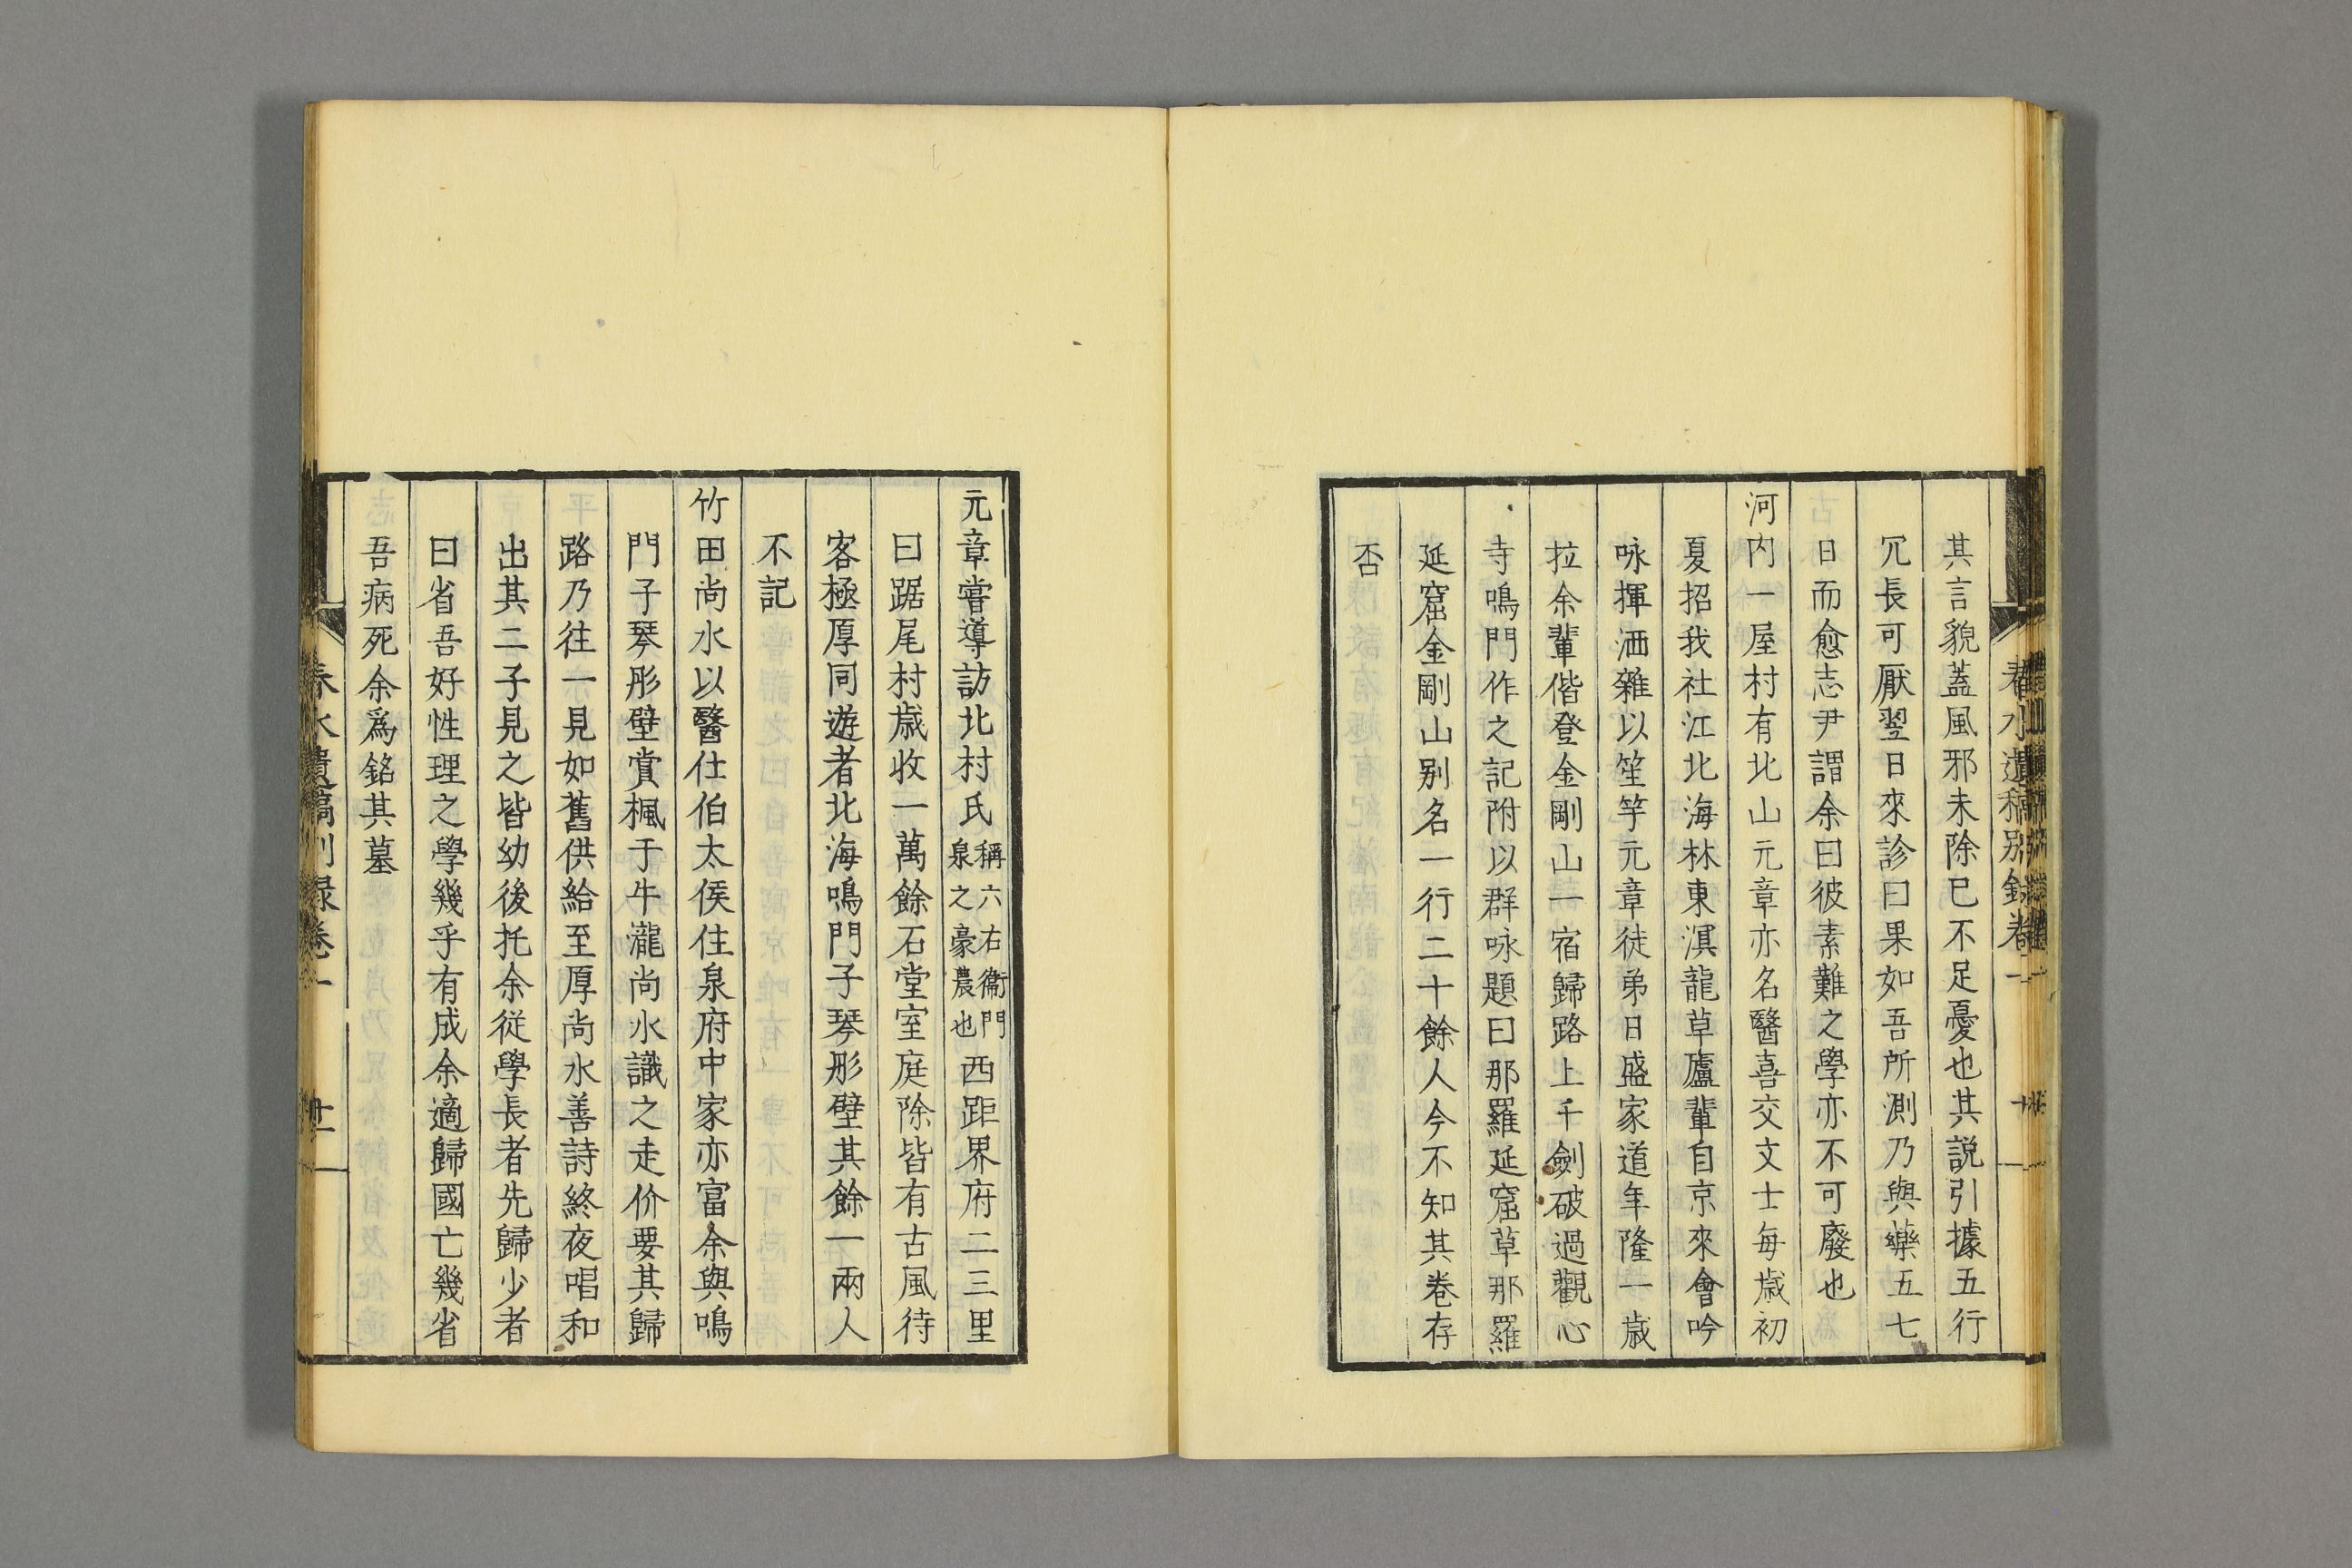 其言貌蓋風邪未除已不足憂也其説引據五行
冗長可厭翌日來診曰果如吾所測乃與藥五七
日而愈志尹謂余曰彼素難之學亦不可廢也
河内一屋村有北山元章亦名醫喜交文士毎歳初
夏招我社江北海林東溟龍草廬輩自京來會吟
咏揮洒雜以笙竽元章徒弟日盛家道年隆一歳
拉余輩偕登金剛山一宿歸路上千劍破過觀心
寺鳴門作之記附以群咏題曰那羅延窟草那羅
延窟金剛山别名一行二十餘人今不知其卷存
否
元章嘗導訪北村氏稱六右衞門泉之豪農也西距界府二三里
曰踞尾村歳收一萬餘石堂室庭除皆有古風待
客極厚同遊者北海鳴門子琴彤壁其餘一兩人
不記
竹田尚水以醫仕伯太侯住泉府中家亦富余與鳴
門子琴彤壁賞楓于牛瀧尚水識之走价要其歸
路乃往一見如舊供給至厚尚水善詩終夜唱和
出其二子見之皆幼後托余従學長者先歸少者
曰省吾好性理之學幾乎有成余適歸國亡幾省
吾病死余爲銘其墓
春水遺稿别録卷一